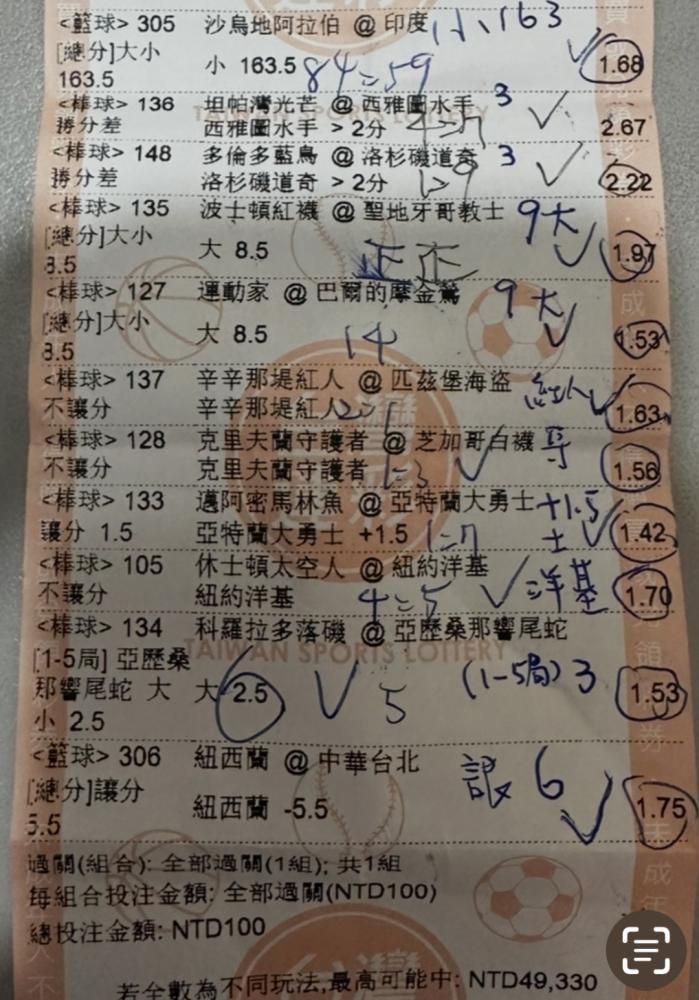 <籃球> 305 沙烏地阿拉伯 @ 印度 小163
[總分]大小
163.5 小 163.5 84=59 1.68
<棒球> 136 坦帕灣光芒 @ 西雅圖水手 3
勝分差 西雅圖水手 > 2分 4=7 2.67
<棒球> 148 多倫多藍鳥 @ 洛杉磯道奇 3
勝分差 洛杉磯道奇 > 2分 1>9 2.22
<棒球> 135 波士頓紅襪 @ 聖地牙哥教士 9大
[總分]大小
8.5 大 8.5 正正 1.97
<棒球> 127 運動家 @ 巴爾的摩金鶯 9大
[總分]大小
8.5 大 8.5 14 1.53
<棒球> 137 辛辛那堤紅人 @ 匹茲堡海盜 紅人
不讓分 辛辛那堤紅人 2=1 1.63
<棒球> 128 克里夫蘭守護者 @ 芝加哥白襪 守
不讓分 克里夫蘭守護者 1=3 1.56
<棒球> 133 邁阿密馬林魚 @ 亞特蘭大勇士 +1.5
讓分 1.5 亞特蘭大勇士 +1.5 1=7 士 1.42
<棒球> 105 休士頓太空人 @ 紐約洋基
不讓分 紐約洋基 4=5 洋基 1.70
<棒球> 134 科羅拉多落磯 @ 亞歷桑那響尾蛇
TAIWAN SPORTS LOTTERY
[1-5局] 亞歷桑
那響尾蛇 大 大 2.5 5 (1-5局) 3 1.53
小 2.5
<籃球> 306 紐西蘭 @ 中華台北
[總分]讓分 讓 6
5.5 紐西蘭 -5.5 1.75
過關(組合): 全部過關(1組); 共1組
每組合投注金額: 全部過關(NTD100)
總投注金額: NTD100
若全數為不同玩法,最高可能中: NTD49,330